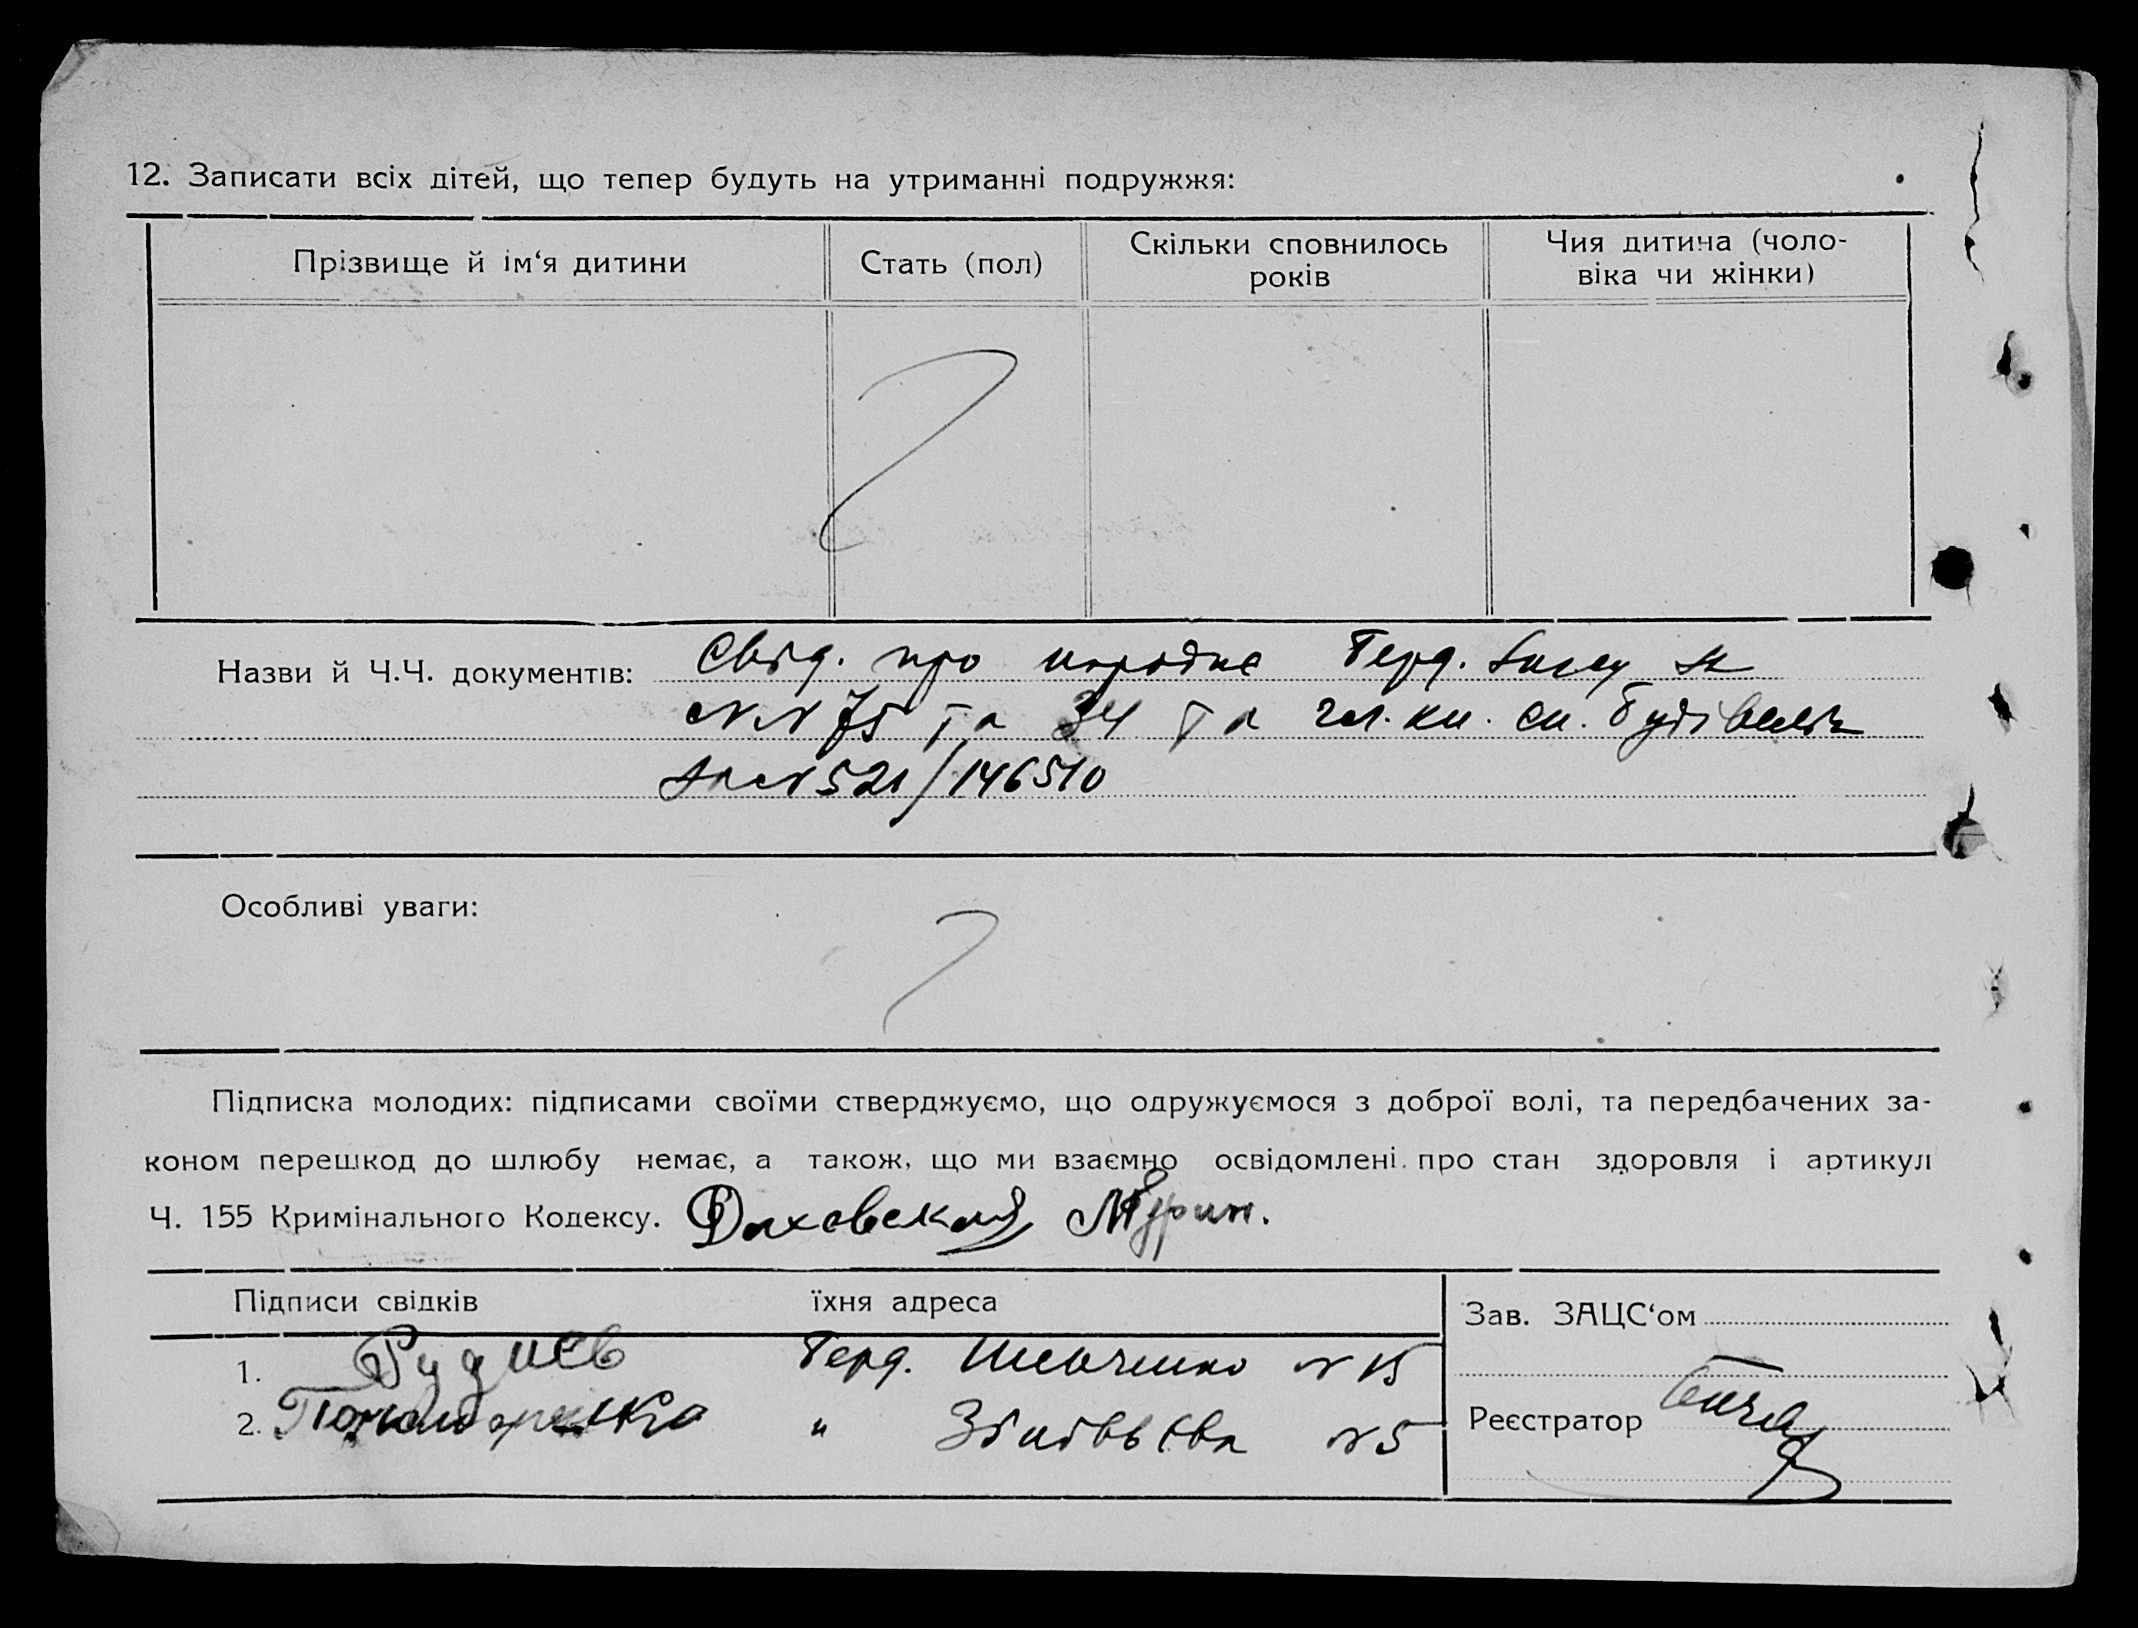 12. Записати всіх дітей, що тепер будуть на утриманні подружжя:
Прізвище й ім‘я дитини
Стать (пол)
Скільки сповнилось
років
Чия дитина (чоло-
віка чи жінки)
Назви й Ч.Ч. документів: Свід. про Герд.
NN 75 та 34 та чл. кн. сп. будівельн
за N 521/146510
Особливі уваги:
Підписка молодих: підписами своїми стверджуємо, що одружуємося з доброї волі, та передбачених за-
коном перешкод до шлюбу немає, а також, що ми взаємно освідомлені про стан здоровля і артикул
Ч. 155 Кримінального Кодексу.
Підписи свідків їхня адреса
1. Руднєв Герд. Шевченко N 15
2. " Зінов'єва N 5
Зав. ЗАЦС‘ом
Реєстратор